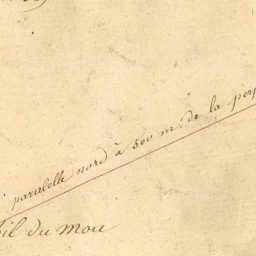 parallele nord à 500 m. de la perp
il du mou